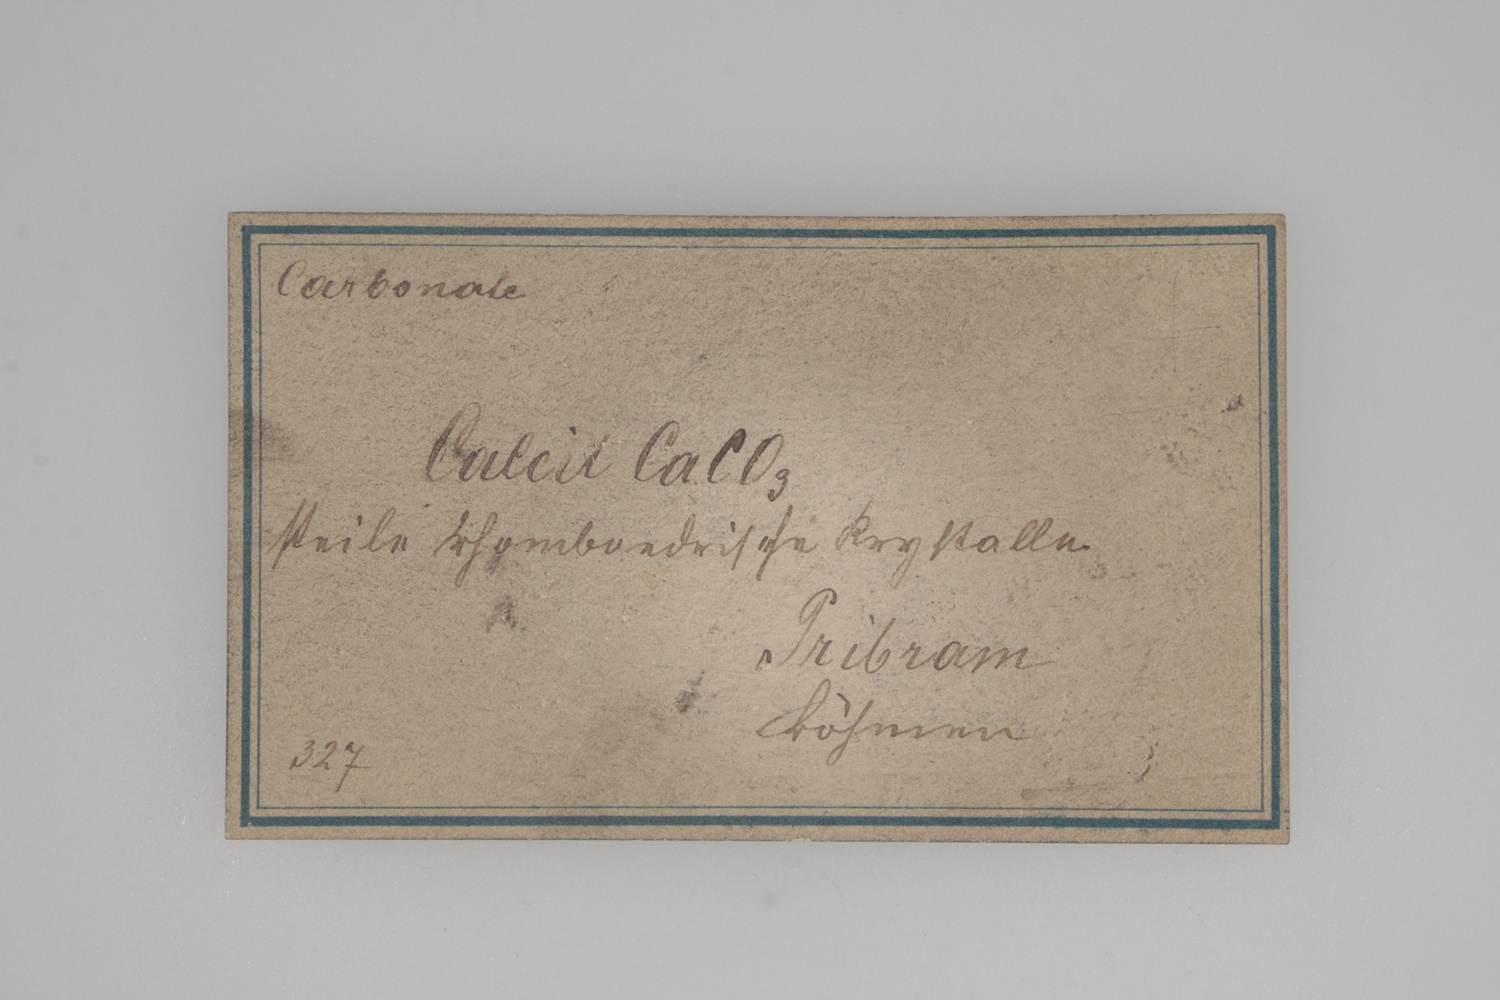 Carbonate
Calcit CaCO₃
steile rhomboedrische Krystalle
Pribram
Böhmen
327